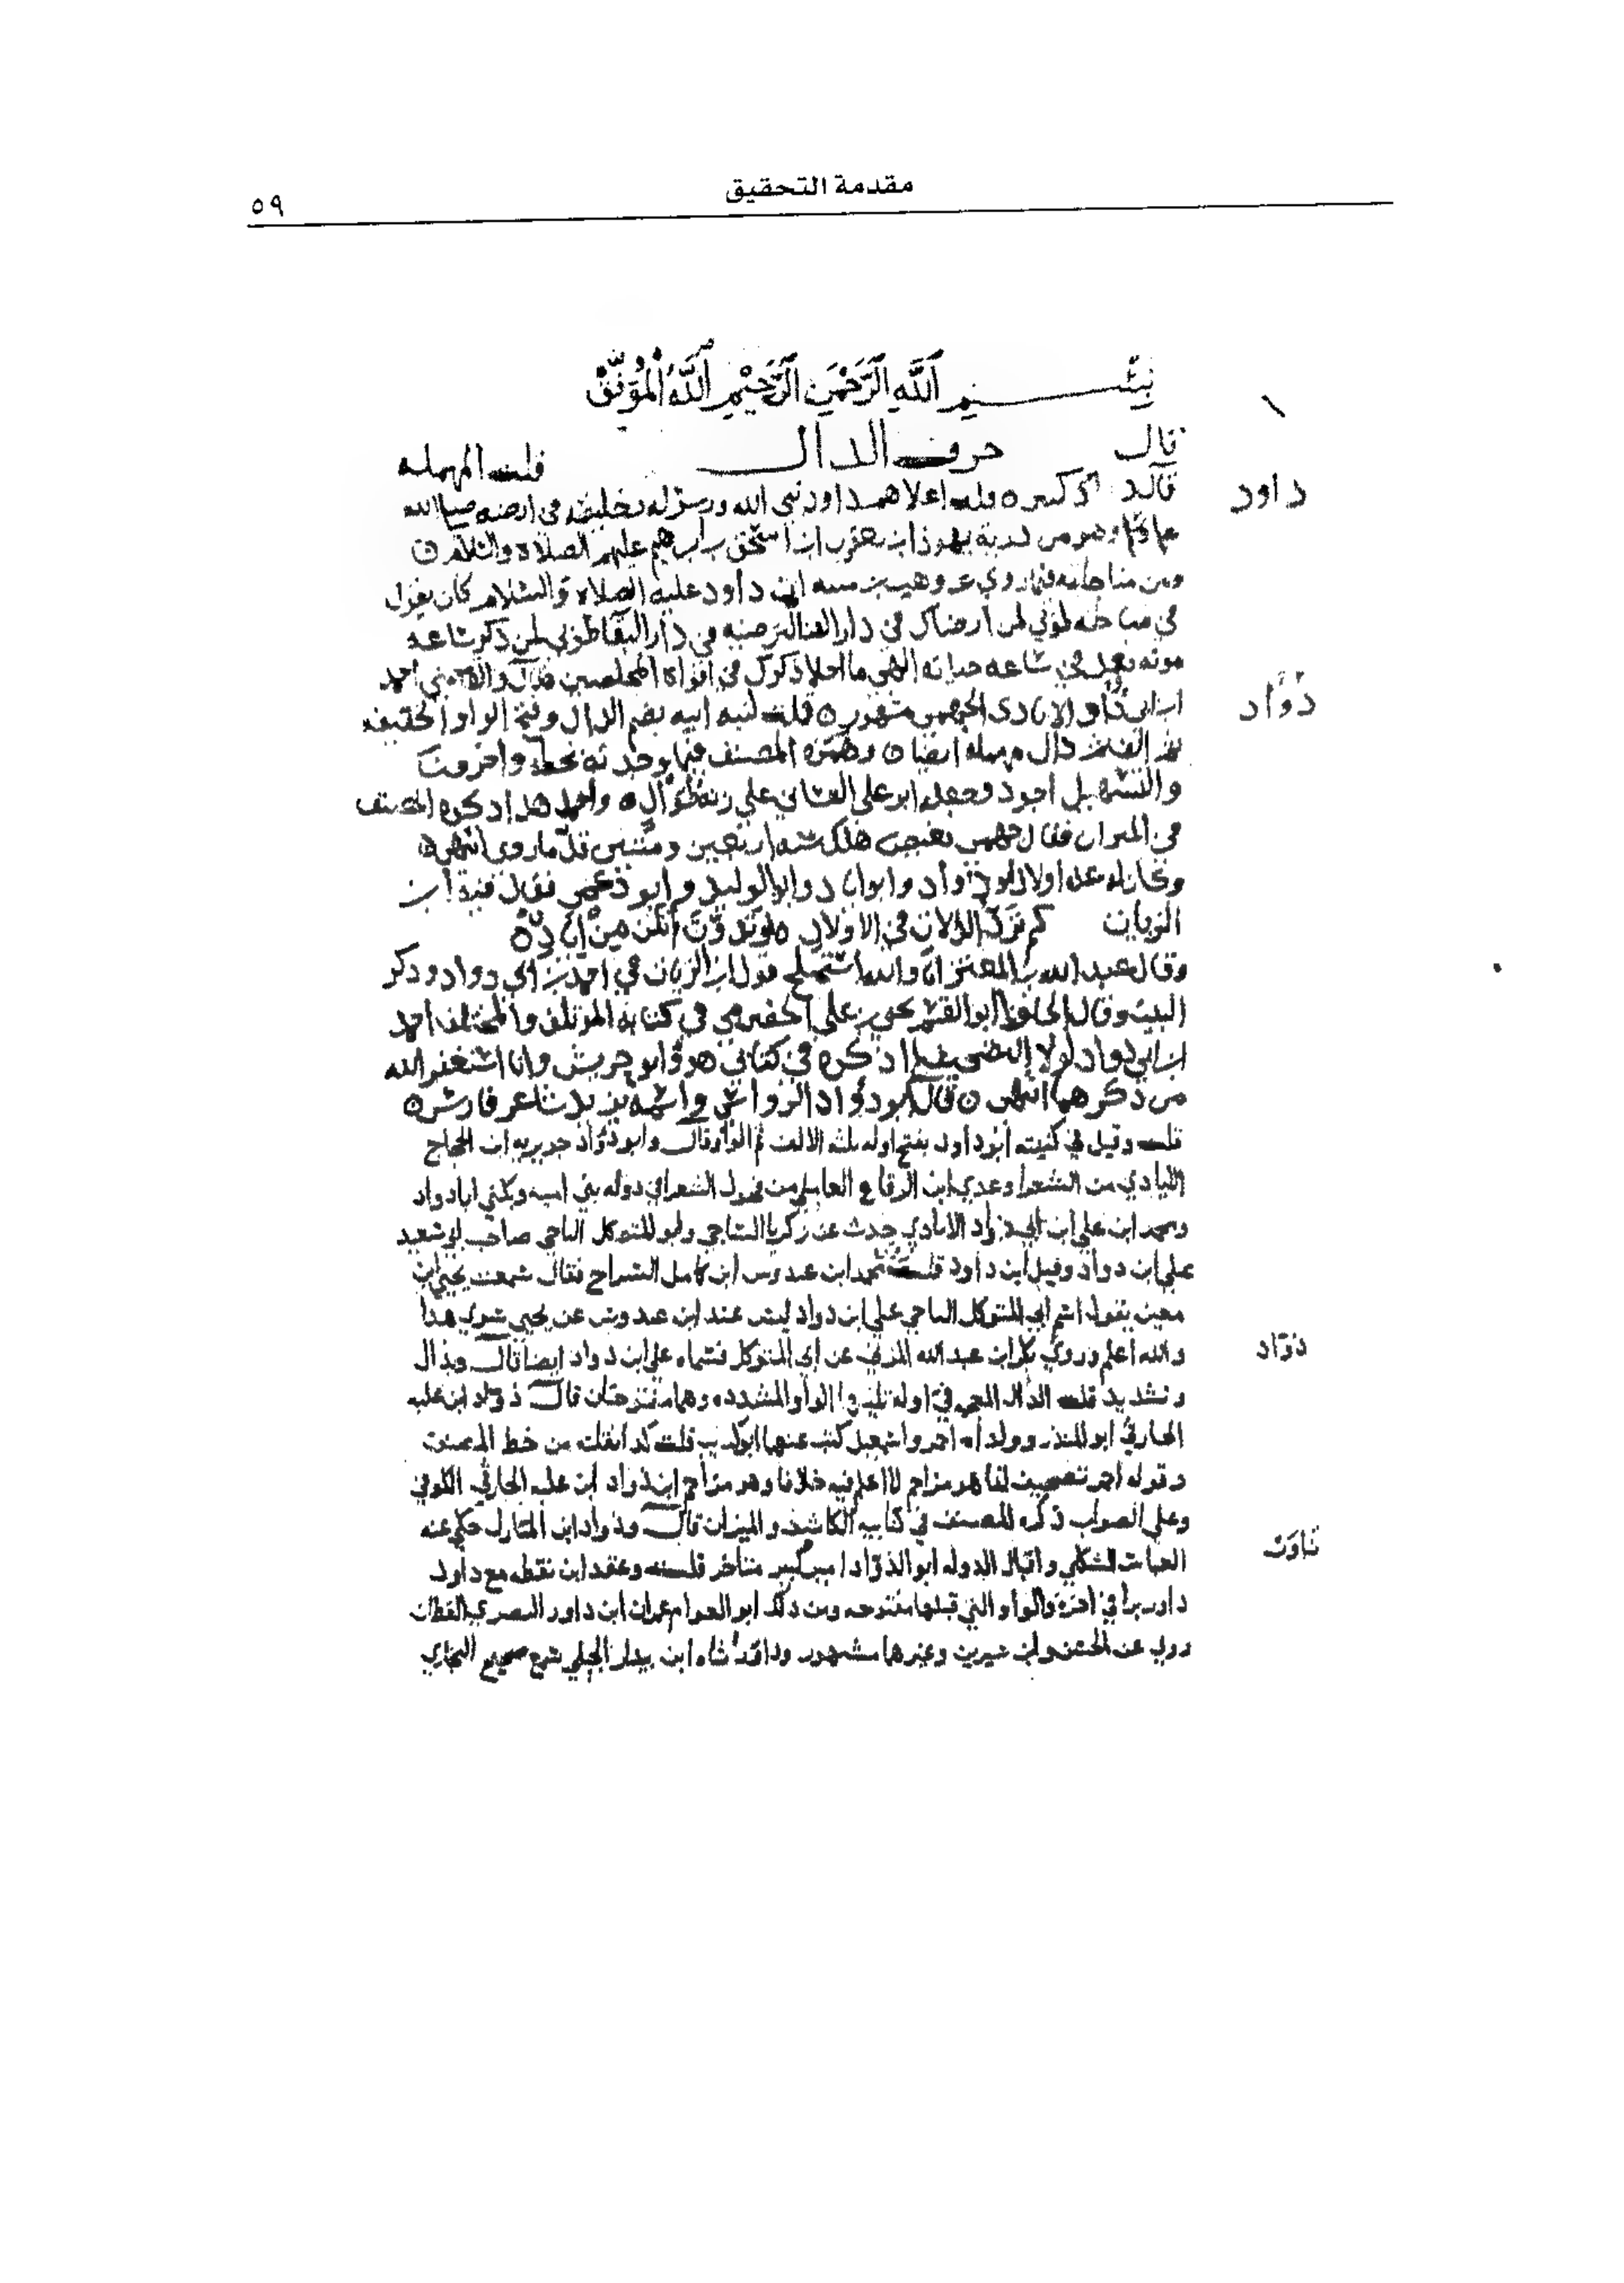 مقدمة التحقيق
٥٩
بسم الله الرحمن الرحيم الله الموفق
قال حرف الدال قلت المهملة
داود
قال داود كثير قلت اعلاهم داود نبي الله ورسوله وخليفته في ارضه صلى الله
وهو من ذرية يهوذا بن يعقوب ابن اسحق بن ابرهيم عليهم الصلاة والسلام
ومن مناجاته فيما روي عن وهيب بن منبه ان داود عليه الصلاة والسلام كان يقول
في مناجاته طوبى لمن ارضاك في دار الفنا لترضيه في دار البقا طوبى لمن ذكر ساعه
موته فعمل في ساعه حياته الهي ما احلا ذكرك في افواه المخلصين قال والقاضي احمد
دُؤَاد
ابن ابي دواد الايادي الجهمي مشهور قلت كنيه ابيه بضم الدال وفتح الواو الخفيفه
ثم الف ثم دال مهمله ايضا وهمزه المصنف فيما وجدته بخطه واخرون
والتسهيل اجود وجعله ابو علي الغساني على زنة طوال واحمد هذا ذكره المصنف
في الميزان فقال جهمي بغيض هلك سنه اربعين ومتين قل ما روى انتهى
وكان له عده اولاد ابو دواد وابو اياد وابو الوليد وابو دعمي فقال فيه ابن
الزيات
وقال عبد الله بن المعتز انا والله استملح قول ابن الزيات في احمد بن ابي دواد وذكر
البيت وقال الحافظ ابو القسم يحيى بن علي الحضرمي في كتابه المؤتلف والمختلف احمد
ابن ابي دواد لولا التصحيف لما اذكره في كتابي هو وابو حريش وانا استغفر الله
من ذكرهما انتهى قال ابو دواد الرواسي واسمه يزيد شاعر فارس
قلت وقيل في كنيته ابو داود بفتح اوله يليه الالف ثم الواو قال وابو دؤاد جويريه ابن الحجاج
الايادي من الشعرا وعدي ابن الرقاع العاملي من فحول الشعرا في دوله بني اميه ويكنى ابا دواد
ومحمد ابن علي ابن ابي دواد الايادي حدث عن زكريا الساجي وابو المتوكل الناجي صاحب ابي سعيد
علي ابن دواد وقيل ابن داود قلت محمد ابن عبدوس ابن كامل السراج فقال سمعت يحيى ابن
معين يقول اسم ابي المتوكل الناجي علي ابن دواد ليس عند ابن عبدوس عن يحيى سوى هذا
ذوّاد
والله اعلم وروى بكر ابن عبد الله المزني عن ابي المتوكل فسماه علي ابن دواد ايضا قال وبذال
وتشديد قلت الذال المعجمه في اوله تليها الواو المشدده وهما مفتوحتان قال ذواد ابن علبه
الحارثي ابو المنذر وولداه احمر واسمعيل كتب عنهما ابو كريب قلت كذا نقلت من خط المصنف
وقوله احمر تصحيف انما هو مزاحم لا اعلم فيه خلافا وهو مزاحم ابن ذواد ابن علبه الحارثي الكوفي
وعلى الصواب ذكره المصنف في كتابيه الكاشف والميزان قال وذواد ابن المبارك حكى عنه
العباس الشكلي واقبال الدوله ابو الذواد امير كبير متاخر قلت وعقد ابن نقطه مع داود
دَاوَر
داور برا في اخره والواو التي قبلها مفتوحه ومن ذلك ابو العوام عمران ابن داور البصري القطان
روى عن الحسن وابن سيرين وغيرهما مشهور